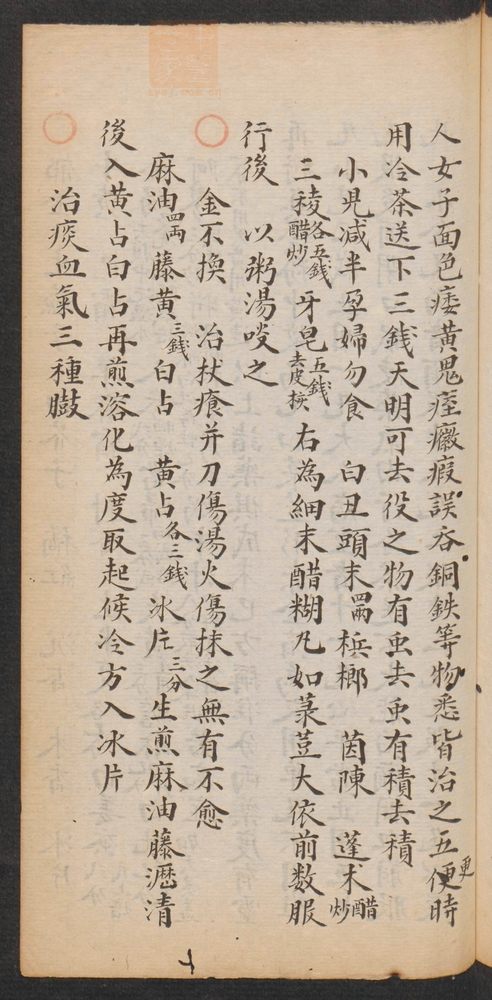 人女子面色痿黃鬼痓癥瘕誤吞銅鉄等物悉皆治之五便時
更
用冷茶送下三錢天明可去役之物有虫去虫有積去積
小児減半孕婦勿食 白丑頭末四兩 梹榔 茵陳 蓬朮醋炒
三稜各五錢醋炒 牙皂五錢去皮梜 右為細末醋糊凡如菉荳大依前数服
行後 以粥湯啖之
○ 金不換 治杖瘡并刀傷湯火傷抹之無有不愈
麻油四両 藤黃三錢 白占 黃占各三錢 冰片三分 生煎麻油藤瀝清
後入黃占白占再煎溶化為度取起候冷方入冰片
○ 治痰血氣三種臌